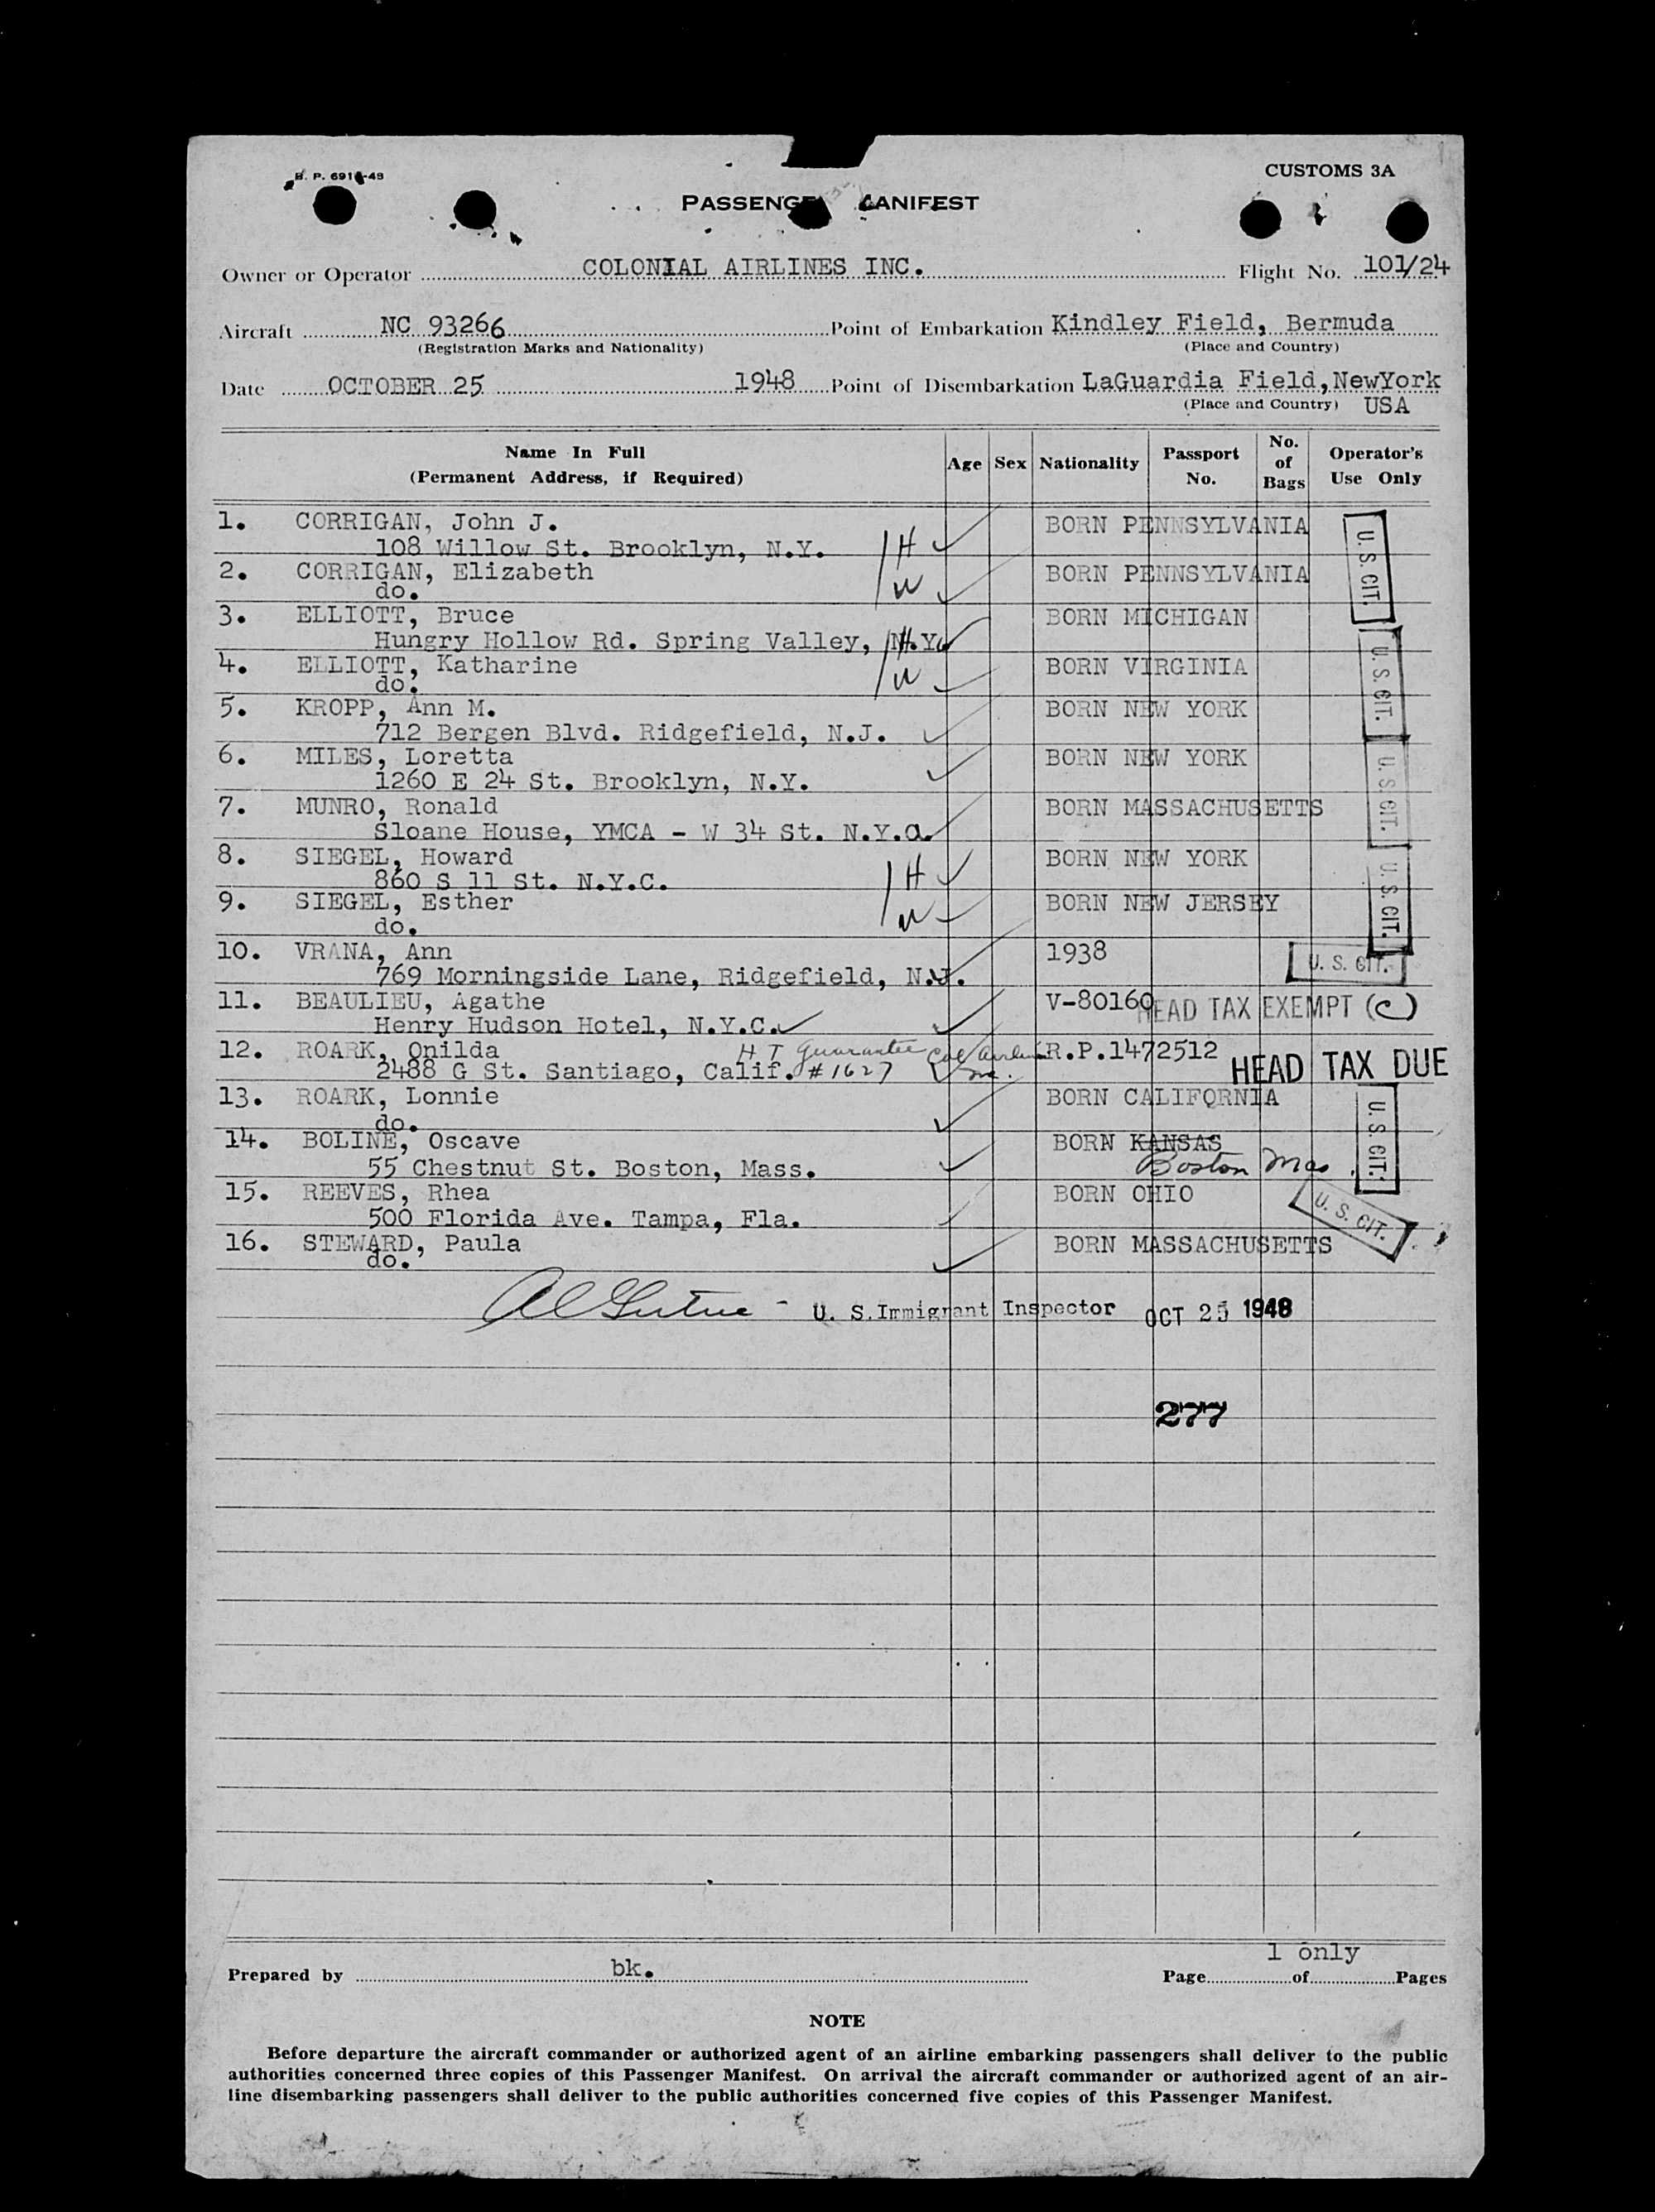 CUSTOMS 3A
PASSENGE ANIFEST
Owner or Operator COLONIAL AIRLINES INC. Flight No. 101/24
Aircraft NC 93266 Point of Embarkation Kindley Field, Bermuda
(Registration Marks and Nationality) (Place and Country)
Date OCTOBER 25 1948 Point of Disembarkation LaGuardia Field, NewYork
(Place and Country) USA
Name In Full (Permanent Address, if Required) Age Sex Nationality Passport No. No. of Bags Operator's Use Only
1. CORRIGAN, John J. BORN PENNSYLVANIA
108 Willow St. Brooklyn, N.Y. H U.S. CIT.
2. CORRIGAN, Elizabeth BORN PENNSYLVANIA
do. W
3. ELLIOTT, Bruce BORN MICHIGAN
Hungry Hollow Rd. Spring Valley, N.Y. H U.S. CIT.
4. ELLIOTT, Katharine BORN VIRGINIA
do. W
5. KROPP, Ann M. BORN NEW YORK
712 Bergen Blvd. Ridgefield, N.J.
6. MILES, Loretta BORN NEW YORK U.S. CIT.
1260 E 24 St. Brooklyn, N.Y.
7. MUNRO, Ronald BORN MASSACHUSETTS
Sloane House, YMCA - W 34 St. N.Y.
8. SIEGEL, Howard BORN NEW YORK U.S. CIT.
860 S 11 St. N.Y.C. H
9. SIEGEL, Esther BORN NEW JERSEY
do. W
10. VRANA, Ann 1938 U. S. CIT.
769 Morningside Lane, Ridgefield, N.J.
11. BEAULIEU, Agathe V-80160 HEAD TAX EXEMPT (C)
Henry Hudson Hotel, N.Y.C.
12. ROARK, Onilda H T Guarantee Col Airlines R.P.1472512 HEAD TAX DUE
2488 G St. Santiago, Calif. #1627 Inc.
13. ROARK, Lonnie BORN CALIFORNIA U.S. CIT.
do.
14. BOLINE, Oscave BORN KANSAS
55 Chestnut St. Boston, Mass. Boston Mas
15. REEVES, Rhea BORN OHIO U. S. CIT.
500 Florida Ave. Tampa, Fla.
16. STEWARD, Paula BORN MASSACHUSETTS
do.
U. S. Immigrant Inspector OCT 25 1948
277
Prepared by bk. Page 1 only of Pages
NOTE
Before departure the aircraft commander or authorized agent of an airline embarking passengers shall deliver to the public
authorities concerned three copies of this Passenger Manifest. On arrival the aircraft commander or authorized agent of an air-
line disembarking passengers shall deliver to the public authorities concerned five copies of this Passenger Manifest.